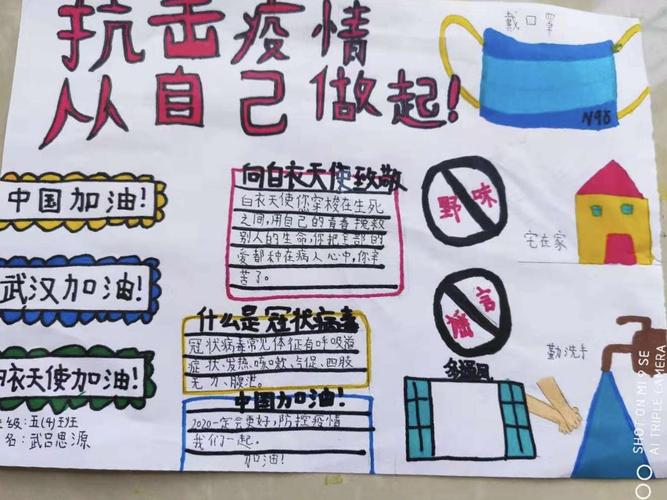 抗击疫情
从自己做起!
戴口罩
N95
中国加油!
武汉加油!
白衣天使加油!
级:五(4)班
名:武吕思源
向白衣天使致敬
白衣天使你穿梭在生死
之间,用自己的青春挽救
别人的生命,你把全部的
爱都种在病人心中,你辛
苦了。
什么是冠状病毒
冠状病毒常见体征有呼吸道
症状、发热、咳嗽、气促、四肢
无力、腹泄。
中国加油!
2020一定会更好,防控疫情
我们一起。
加油!
野味
宅在家
谣言
多通风
勤洗手
SHOT ON MI 9 SE
AI TRIPLE CAMERA